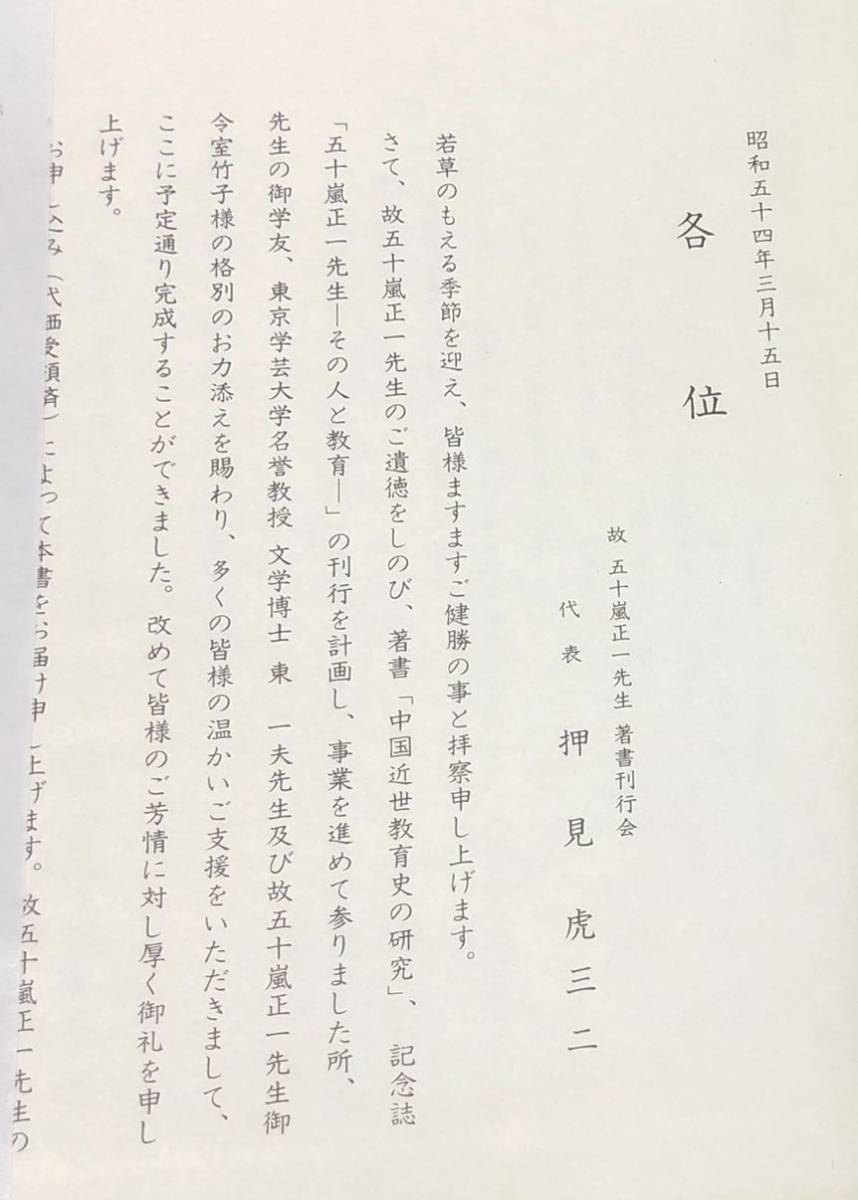 昭和五十四年三月十五日
各位
故 五十嵐正一先生 著書刊行会
代表 押見虎三二
若草のもえる季節を迎え、皆様ますますご健勝の事と拝察申し上げます。
さて、故五十嵐正一先生のご遺徳をしのび、著書「中国近世教育史の研究」、記念誌
「五十嵐正一先生―その人と教育―」の刊行を計画し、事業を進めて参りました所、
先生の御学友、東京学芸大学名誉教授 文学博士 東 一夫先生及び故五十嵐正一先生御
令室竹子様の格別のお力添えを賜わり、多くの皆様の温かいご支援をいただきまして、
ここに予定通り完成することができました。改めて皆様のご芳情に対し厚く御礼を申し
上げます。
お申し込み（代価受領済）によって本書をお届け申し上げます。故五十嵐正一先生の